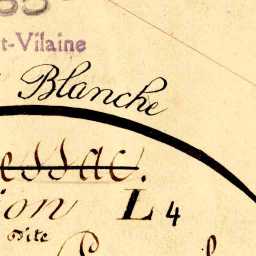 t-Vilaine
Blanche
essac.
ion L4
dite